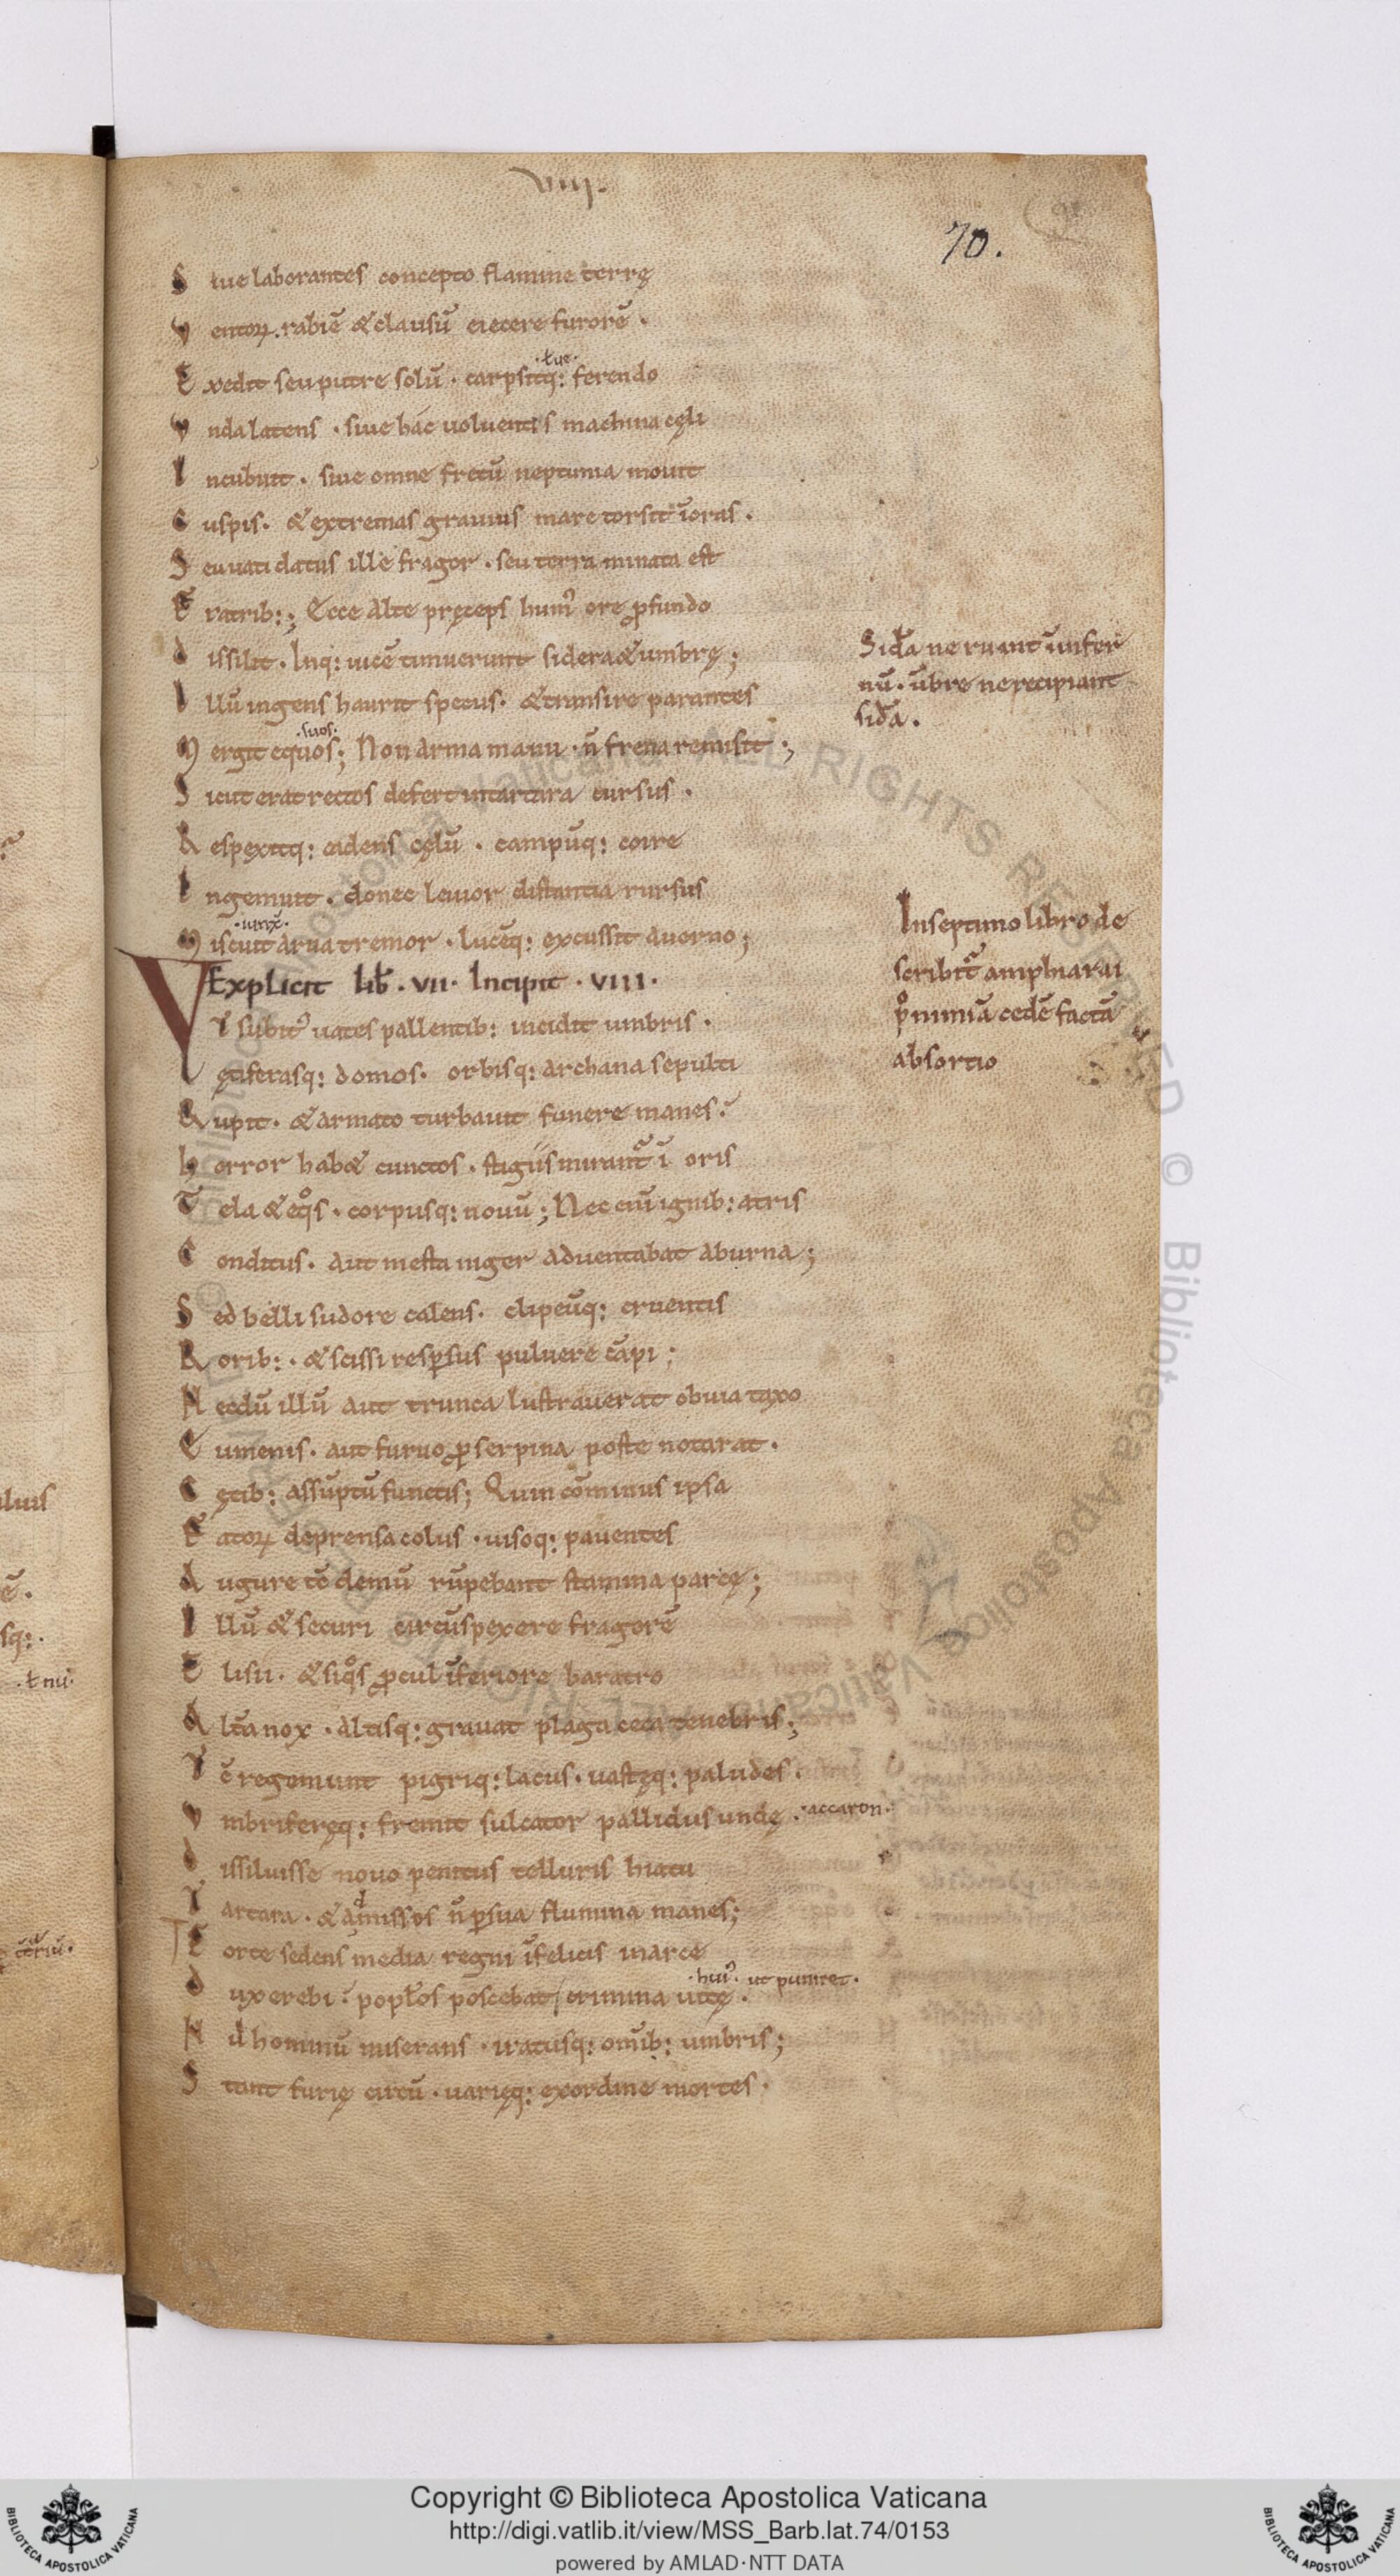 VIII.
70.
S iue laborantes concepto flamine terrę
V entoꝝ. rabiē & clausū eiecere furorē .
·ł ue·
E xedit seu putre solū . carpsitq: ferendo
V nda latens . siue hac uoluentis machina cęli
I ncubuit . siue omne fretū neptunia mouit
C uspis . & extremas grauius mare torsit ī oras .
S eu uati datus ille fragor . seu terra minata est
F ratrib:; Ecce alte pręceps humꝰ ore ꝓfundo
D issilit . Inq: uicē timuerunt sidera & umbrę;
I llū ingens haurit specus . & transire parantes
·suos·
M ergit equos; Non arma manu . ñ frena remisit ;
S icut erat rectos defert in tartara cursus .
R espexitq: cadens cęlū . campūq: coire
I ngemuit . donec leuior distantia rursus
·iunx̄·
M iscuit arua tremor . lucēq: excussit auerno;
Sid̄a ne ruant ī infer
nū . ūbre ne recipiant
sid̄a .
Explicit lib̄ . VII . Incipit . VIII .
V T subitꝰ uates pallentib: incidit umbris .
L ętiferasq: domos . orbisq: archana sepulti
R upit . & armato turbauit funere manes .
H orror hab& cunctos . stigiis mirant ī oris
T ela & eqͦs . corpusq: nouū ; Nec enī ignib: atris
C onditus . aut mesta niger aduentabat ab urna ;
S ed belli sudore calens . clipeūq: cruentis
R orib: . & scissi resꝑsus puluere cāpi ;
N ecdū illū aut trunca lustrauerat obuia taxo
E umenis . aut furuo ꝓserpina poste notarat .
C ętib: assūptū functis; Quin cōminus ipsa
F atoꝝ deprensa colus . uisoq: pauentes
A ugure tc̄ demū rūpebant stamina parcę;
I llū & securi circūspexere fragorē
E lisii . & siqͦs ꝓcul īferiore baratro
A ltā nox . aliisq: grauat plaga ceca tenebris;
T c̄ regemunt pigriq: lacus . uastęq: paludes .
V mbriferęq: fremit sulcator pallidus undę . ·accaron·
D issiluisse nouo penitus telluris hiatu
d
T artara . & amissos ñ ꝑ sua flumina manes;
F orte sedens media regni īfelicis in arce
·huiꝰ· ut puniret·
D ux erebi . popłos poscebat crimina uitę .
N il hominū miserans . iratusq: omīb: umbris;
S tant furię circū . uarięq: ex ordine mortes .
In septimo libro de
scribit amphiarai
ꝑ nimiā cedē factā
absortio
luis
ē .
sq: .
·ł nu·
Copyright © Biblioteca Apostolica Vaticana
http://digi.vatlib.it/view/MSS_Barb.lat.74/0153
powered by AMLAD·NTT DATA
BIBLIOTECA APOSTOLICA VATICANA
BIBLIOTECA APOSTOLICA VATICANA